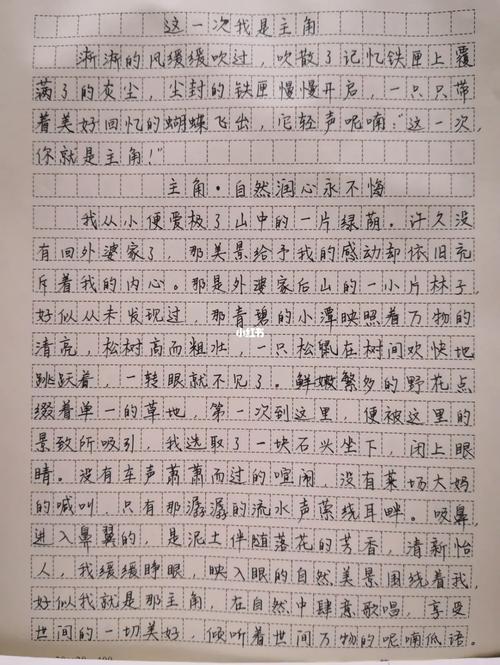 这一次我是主角
淅淅的风缓缓吹过，吹散了记忆铁匣上覆
满了的灰尘，尘封的铁匣慢慢开启，一只只带
着美好回忆的蝴蝶飞出，它轻声呢喃：“这一次，
你就是主角！”
主角·自然润心永不悔
我从小便爱极了山中的一片绿荫。许久没
有回外婆家了，那美景给予我的感动却依旧充
斥着我的内心。那是外婆家后山的一小片林子，
好似从未发现过，那青碧的小潭映照着万物的
清亮，松树高而粗壮，一只松鼠在树间欢快地
跳跃着，一转眼就不见了。鲜嫩繁多的野花点
缀着单一的草地，第一次到这里，便被这里的
景致所吸引，我选取了一块石头坐下，闭上眼
睛。没有车声萧萧而过的喧闹，没有菜场大妈
的喊叫，只有那潺潺的流水声萦绕耳畔。吸鼻，
进入鼻翼的，是泥土伴随落花的芳香，清新怡
人，我缓缓睁眼，映入眼的自然美景围绕着我，
好似我就是那主角，在自然中肆意歌唱，享受
世间的一切美好，倾听着世间万物的呢喃低语。
小红书